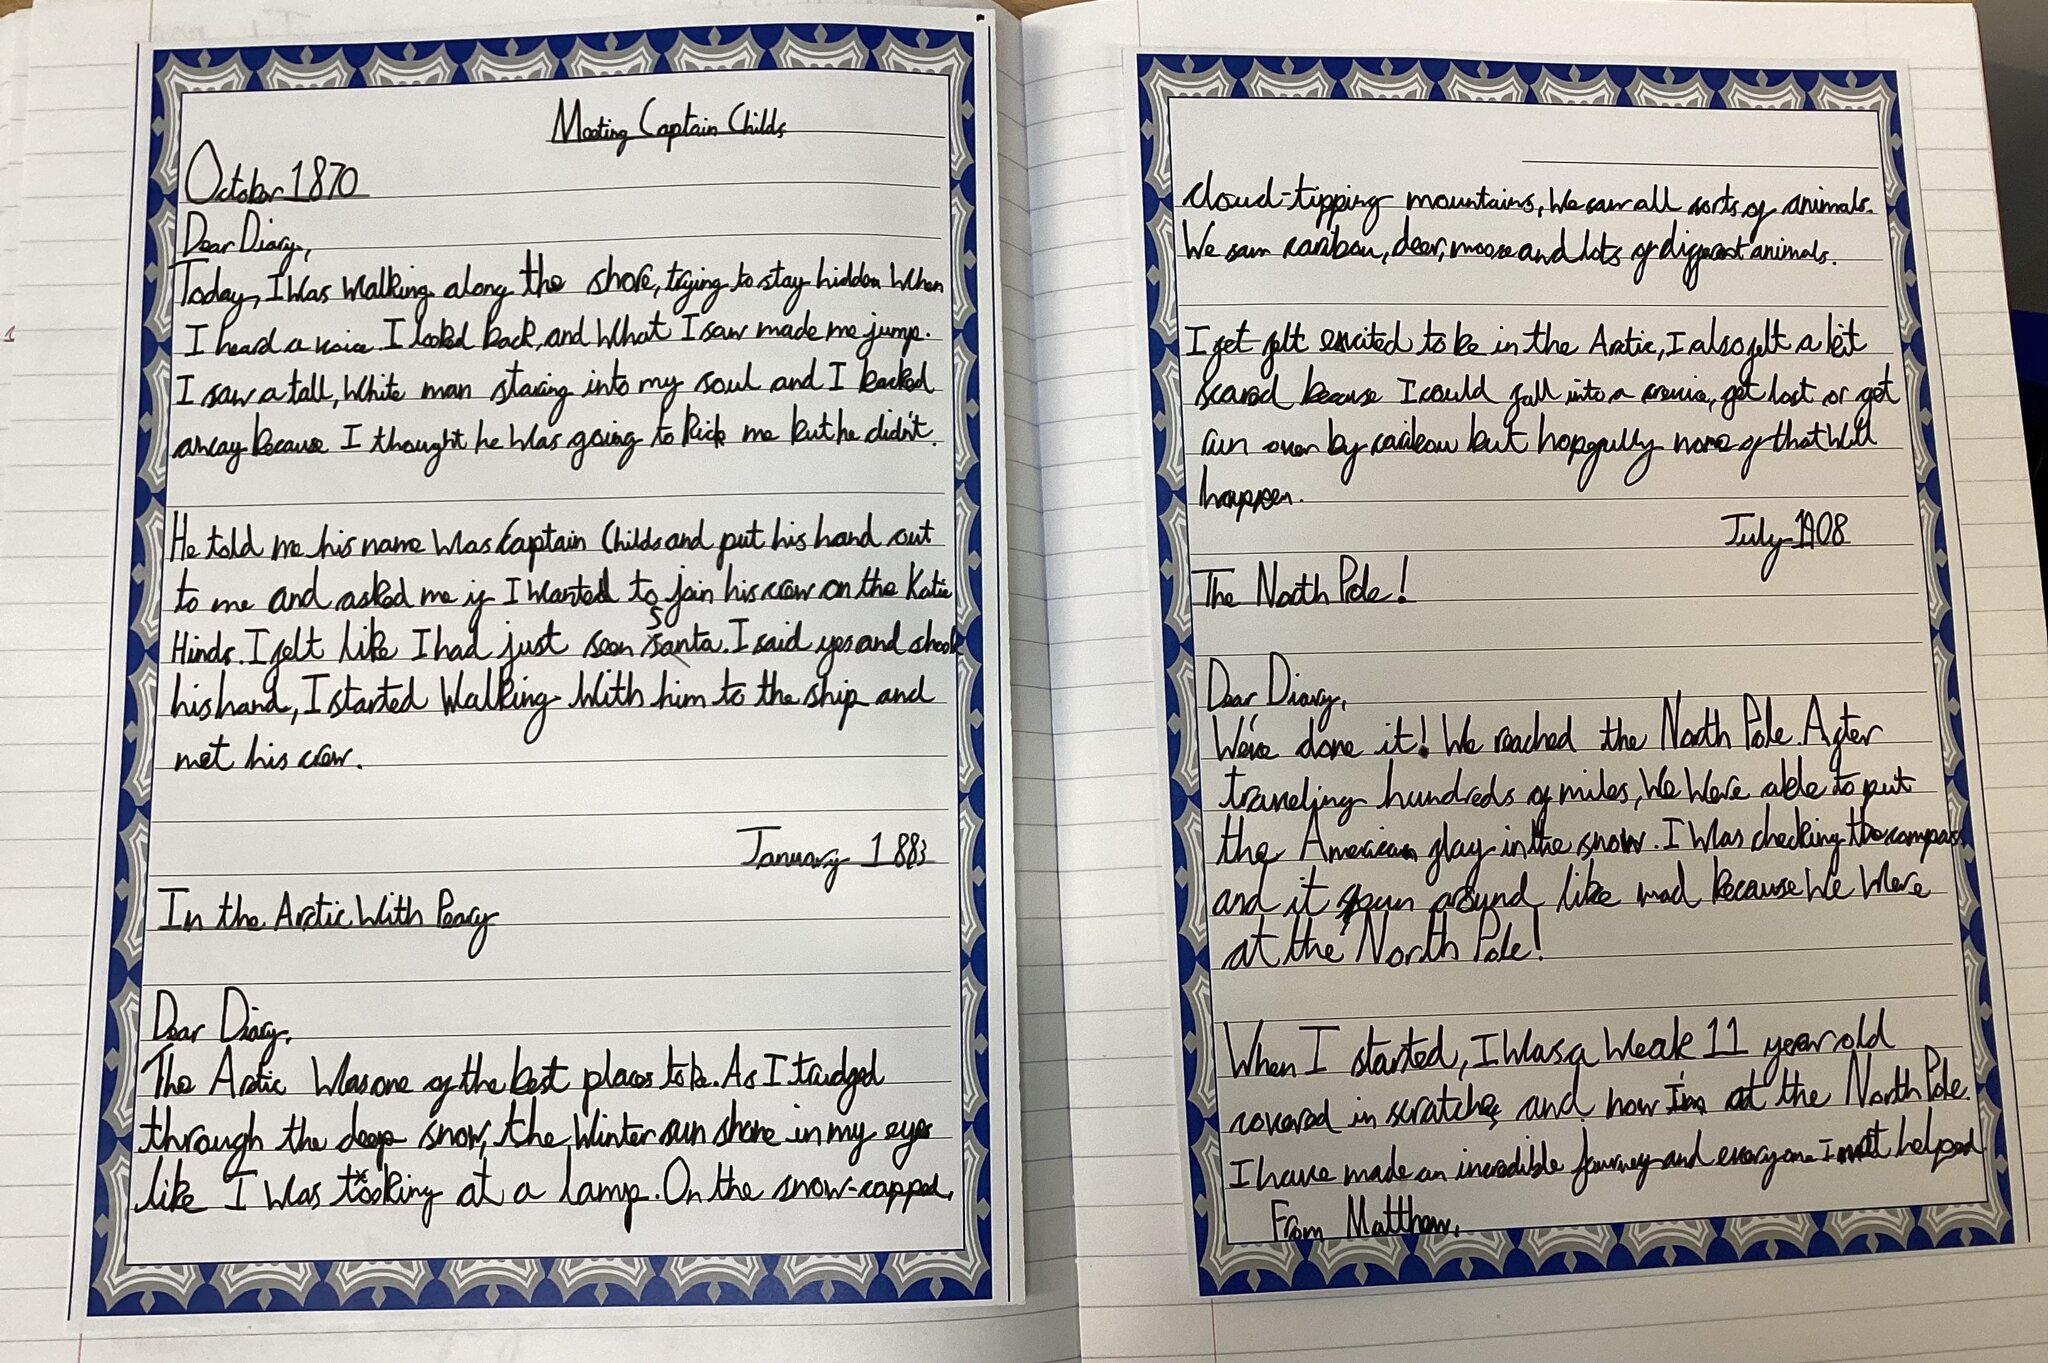 Meeting Captain Childs
October 1870
Dear Diary,
Today, I was walking along the shore, trying to stay hidden when
I heard a voice. I looked back, and what I saw made me jump.
I saw a tall, white man staring into my soul and I backed
away because I thought he was going to kick me but he didn't.
He told me his name was Captain Childs and put his hand out
to me and asked me if I wanted to join his crew on the Katie
Hinds. I felt like I had just seen Santa. I said yes and shook
his hand, I started walking with him to the ship and
met his crew.
January 1883
In the Arctic with Peary
Dear Diary,
The Arctic was one of the best places to be. As I trudged
through the deep snow, the winter sun shone in my eyes
like I was looking at a lamp. On the snow-capped,
cloud-tipping mountains, we saw all sorts of animals.
We saw caribou, deer, moose and lots of different animals.
I get felt excited to be in the Arctic, I also felt a bit
scared because I could fall into a crevice, get lost or get
run over by caribou but hopefully none of that will
happen.
July 1908
The North Pole!
Dear Diary,
We've done it! We reached the North Pole. After
traveling hundreds of miles, we were able to put
the American flag in the snow. I was checking the compass
and it spun around like mad because we were
at the North Pole!
When I started, I was a weak 11 year old
covered in scratches and now I'm at the North Pole.
I have made an incredible journey and everyone I met helped
From Matthew.